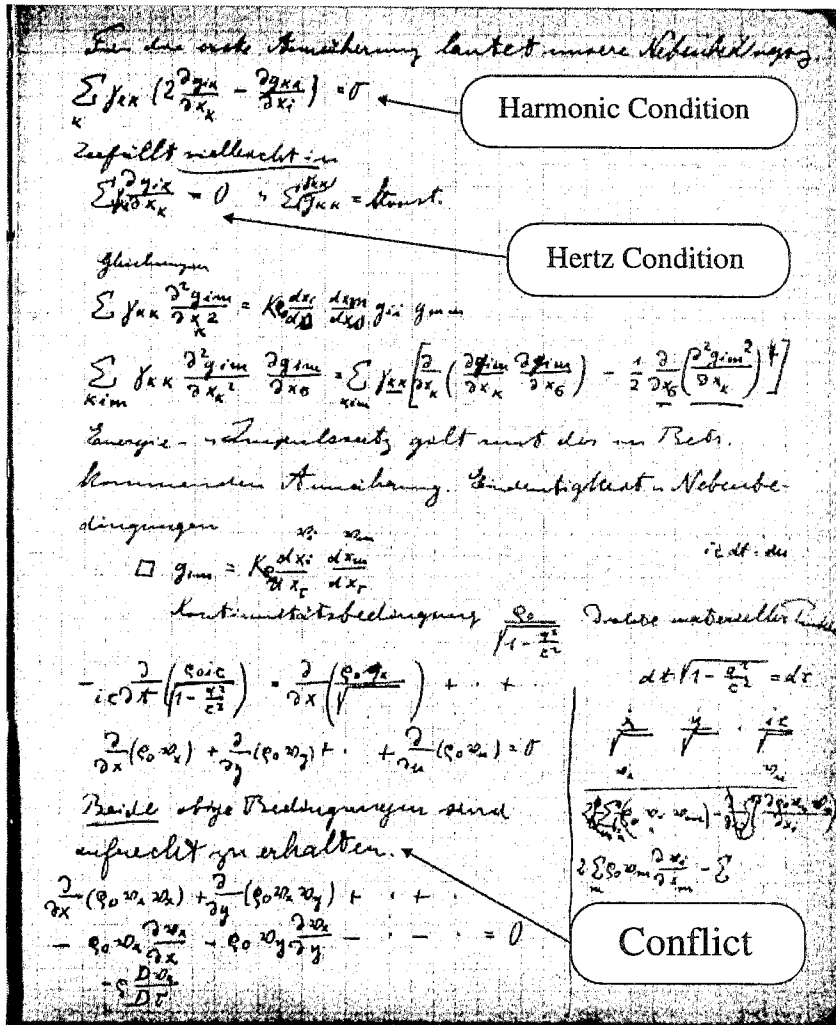 Für die erste Annäherung lautet unsere Nebenbedingung
∑_κ γ_κκ (2 ∂g_iκ/∂x_κ − ∂g_κκ/∂x_i) = 0
Harmonic Condition
Zerfällt vielleicht in
∑ γ_κκ ∂g_iκ/∂x_κ = 0 ∑ γ_κκ g_κκ = konst.
Hertz Condition
Gleichungen
∑ γ_κκ ∂²g_im/∂x_κ² = κρ_0 dx_i/ds dx_m/ds g_ii g_mm
∑_κim γ_κκ ∂²g_im/∂x_κ² ∂g_im/∂x_σ = ∑_κim γ_κκ [∂/∂x_κ (∂g_im/∂x_κ ∂g_im/∂x_σ) − 1/2 ∂/∂x_σ (∂²g_im²/∂x_κ)]
Energie- u Impulssatz gilt mit der in Betr.
kommenden Annäherung. Eindeutigkeit u Nebenbe-
dingungen
□ g_im = κρ_0 dx_i/dτ dx_m/dτ
ic dt = du
Kontinuitätsbedingung ρ_0/√(1 − q²/c²) Dichte materieller Punkte
−∂/ic∂t (ρ_0 ic/√(1 − q²/c²)) = ∂/∂x (ρ_0 q_x/√) + · + ·
dt √(1 − q²/c²) = dτ
∂/∂x (ρ_0 w_x) + ∂/∂y (ρ_0 w_y) + · · + ∂/∂u (ρ_0 w_u) = 0
ẋ/√ ẏ/√ · ic/√
w_x w_u
Beide obige Bedingungen sind
aufrecht zu erhalten.
2 ∑_m ρ_0 w_m ∂w_i/∂x_m − ∑
∂/∂x (ρ_0 w_x w_x) + ∂/∂y (ρ_0 w_x w_y) + · + ·
− ρ_0 w_x ∂w_x/∂x − ρ_0 w_y ∂w_x/∂y − · − · = 0
Conflict
−ρ Dw_x/Dτ